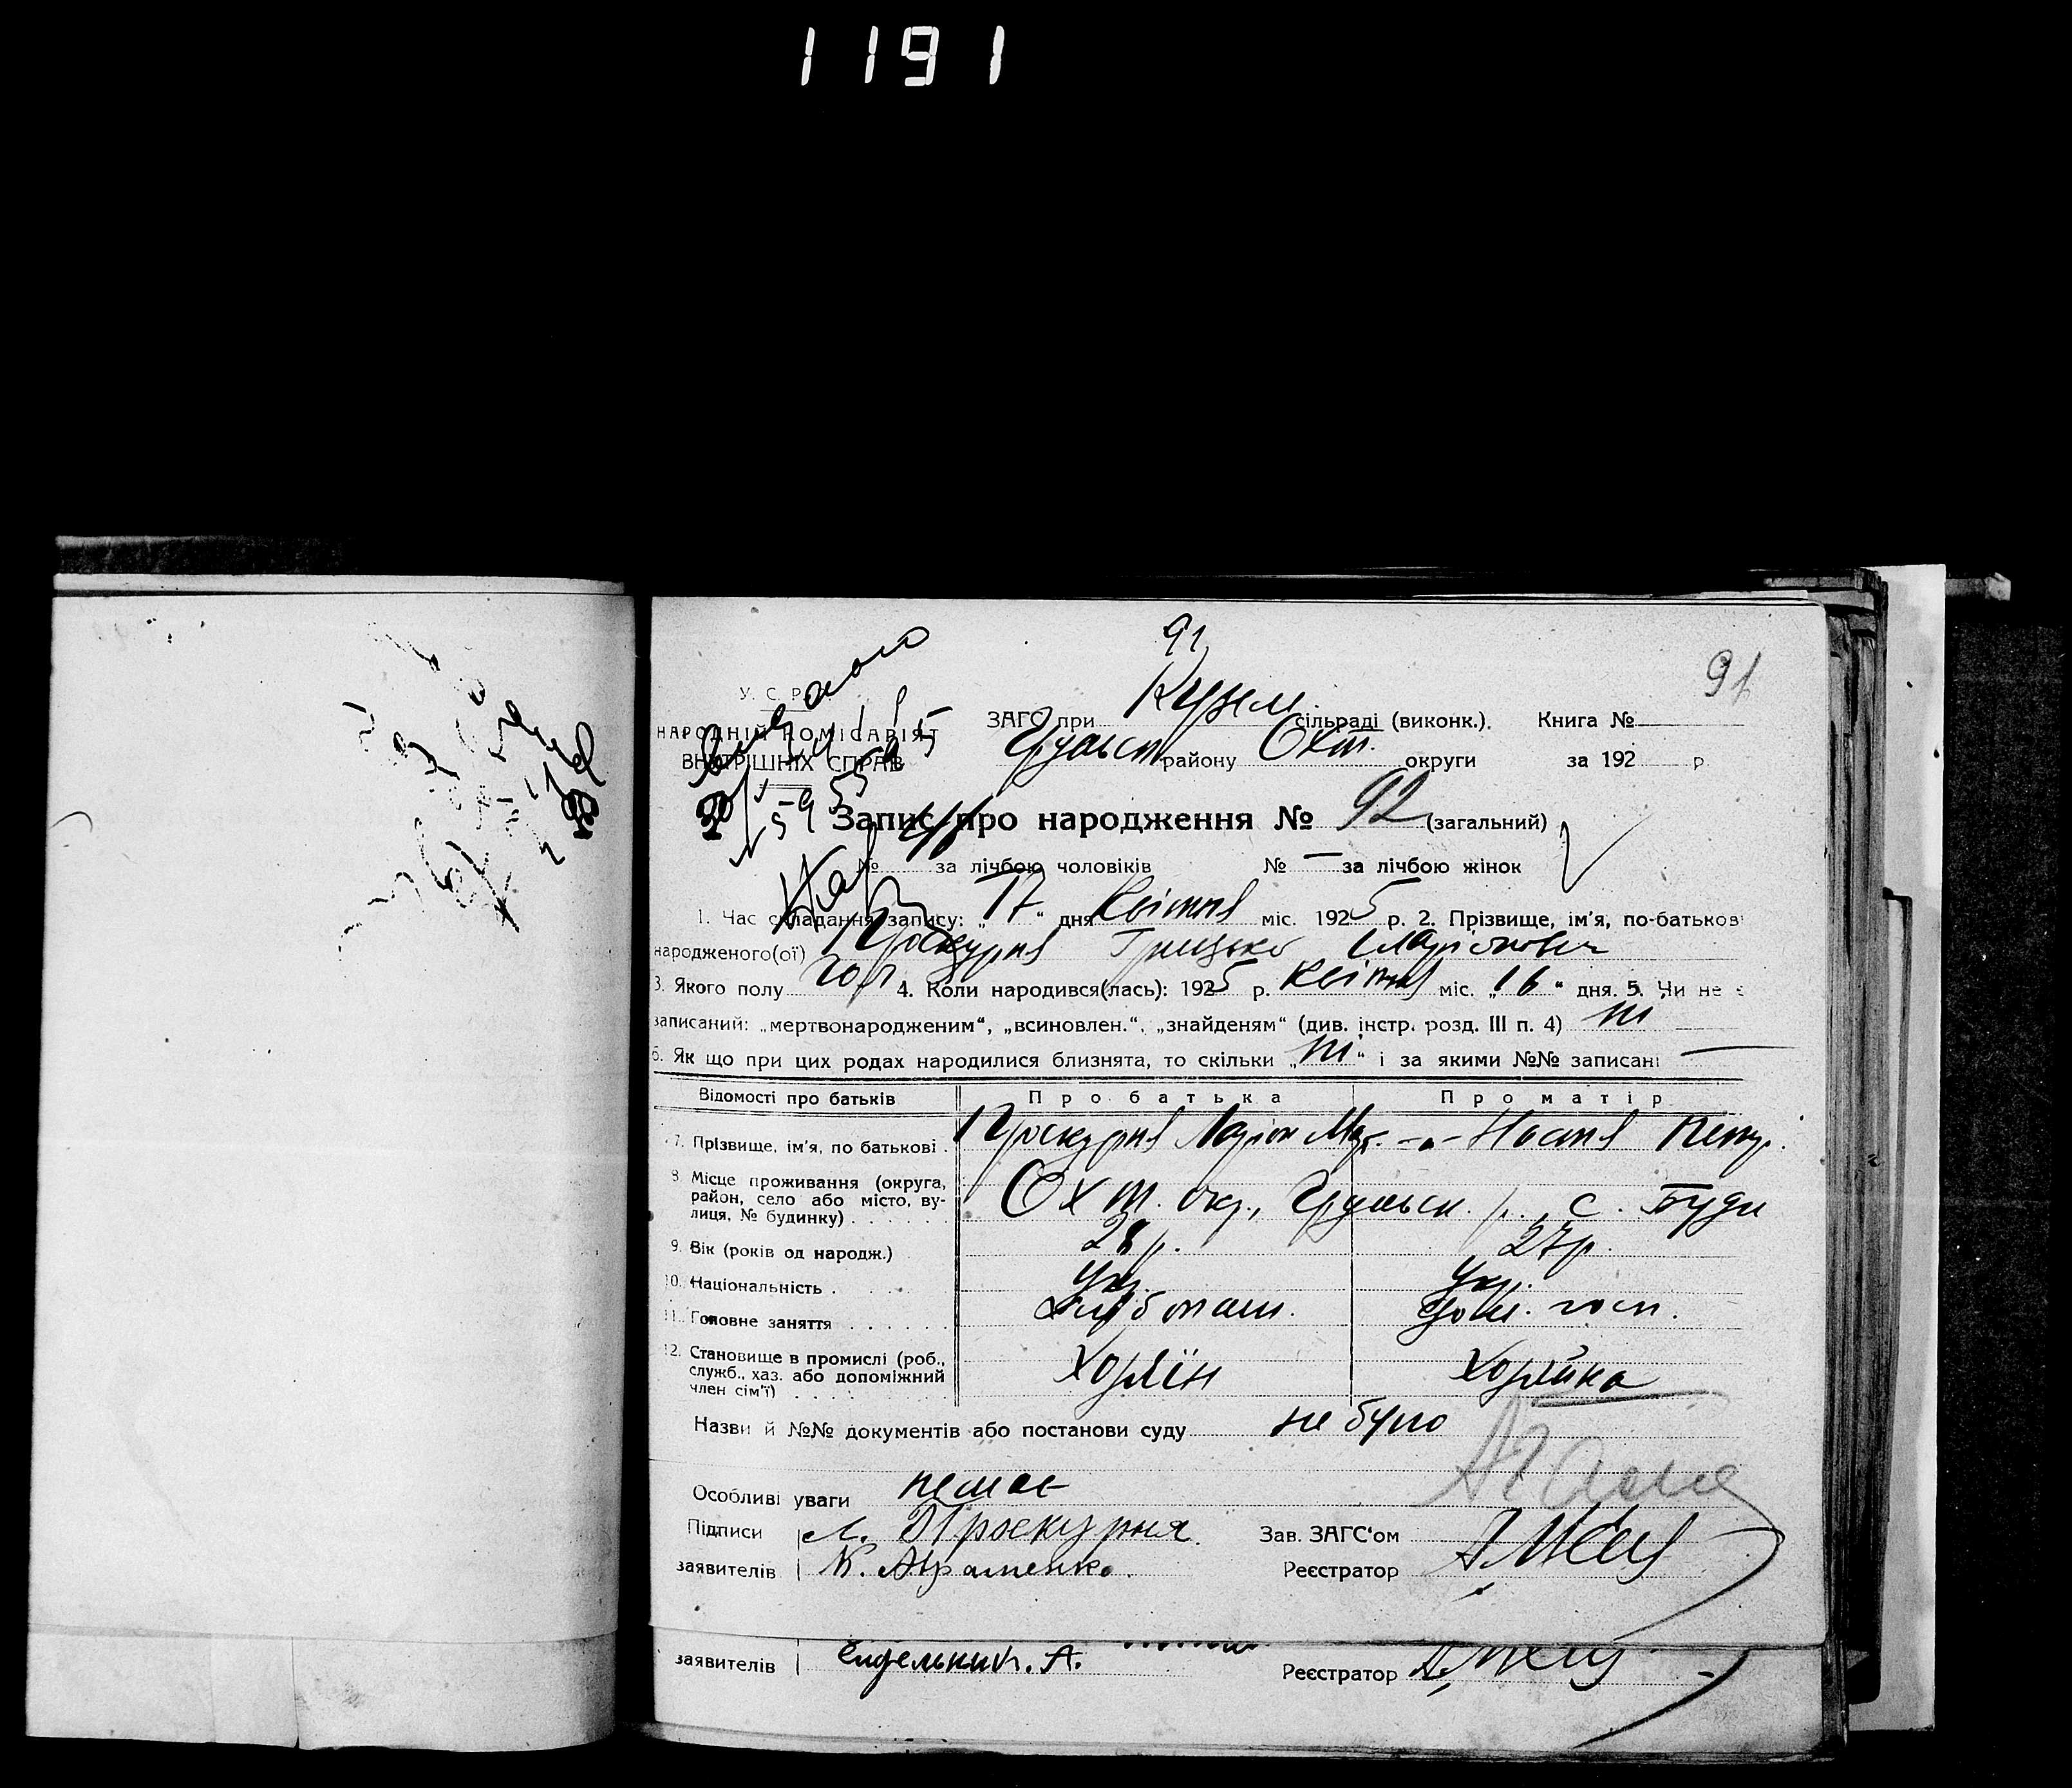 1191
91
91
У. С. Р. Р.
НАРОДНІЙ КОМІСАРІЯТ
ВНУТРІШНІХ СПРАВ
ЗАГС при Кузем. сільраді (виконк.). Книга №
Грунськ району Охт. округи за 192 р.
Запис про народження № 92 (загальний)
№ за лічбою чоловіків № — за лічбою жінок
1. Час складання запису: „17“ дня Квітня міс. 1925 р. 2. Прізвище, ім'я, по-батькові
народженого(ої) Проскурня Грицько Ларіонович
3. Якого полу чол 4. Коли народився(лась): 1925 р. Квітня міс. „16“ дня. 5. Чи не є
записаний: „мертвонародженим“, „всиновлен.“, „знайденям“ (див. інстр. розд. III п. 4) ні
6. Як що при цих родах народилися близнята, то скільки „ні“ і за якими №№ записані —
Відомості про батьків Про батька Про матір
7. Прізвище, ім'я, по батькові . Проскурня Ларіон Мар. -„- Настя Петр.
8. Місце проживання (округа,
район, село або місто, ву-
лиця, № будинку) . . . . . . Охт. окр., Грунськ. р., с. Буди
9. Вік (років од народж.) 28 р. 27 р.
10. Національність . . . . . Укр. Укр.
11. Головне заняття . . . . . . Хлібопаш. дом. госп.
12. Становище в промислі (роб.,
служб., хаз. або допоміжний
член сім'ї) . . . . Хозяїн Хозяйка
Назви й №№ документів або постанови суду не було
Особливі уваги немає
Підписи Л. Проскурня Зав. ЗАГС'ом
заявителів К. Авраменко. Реєстратор
заявителів А. Реєстратор